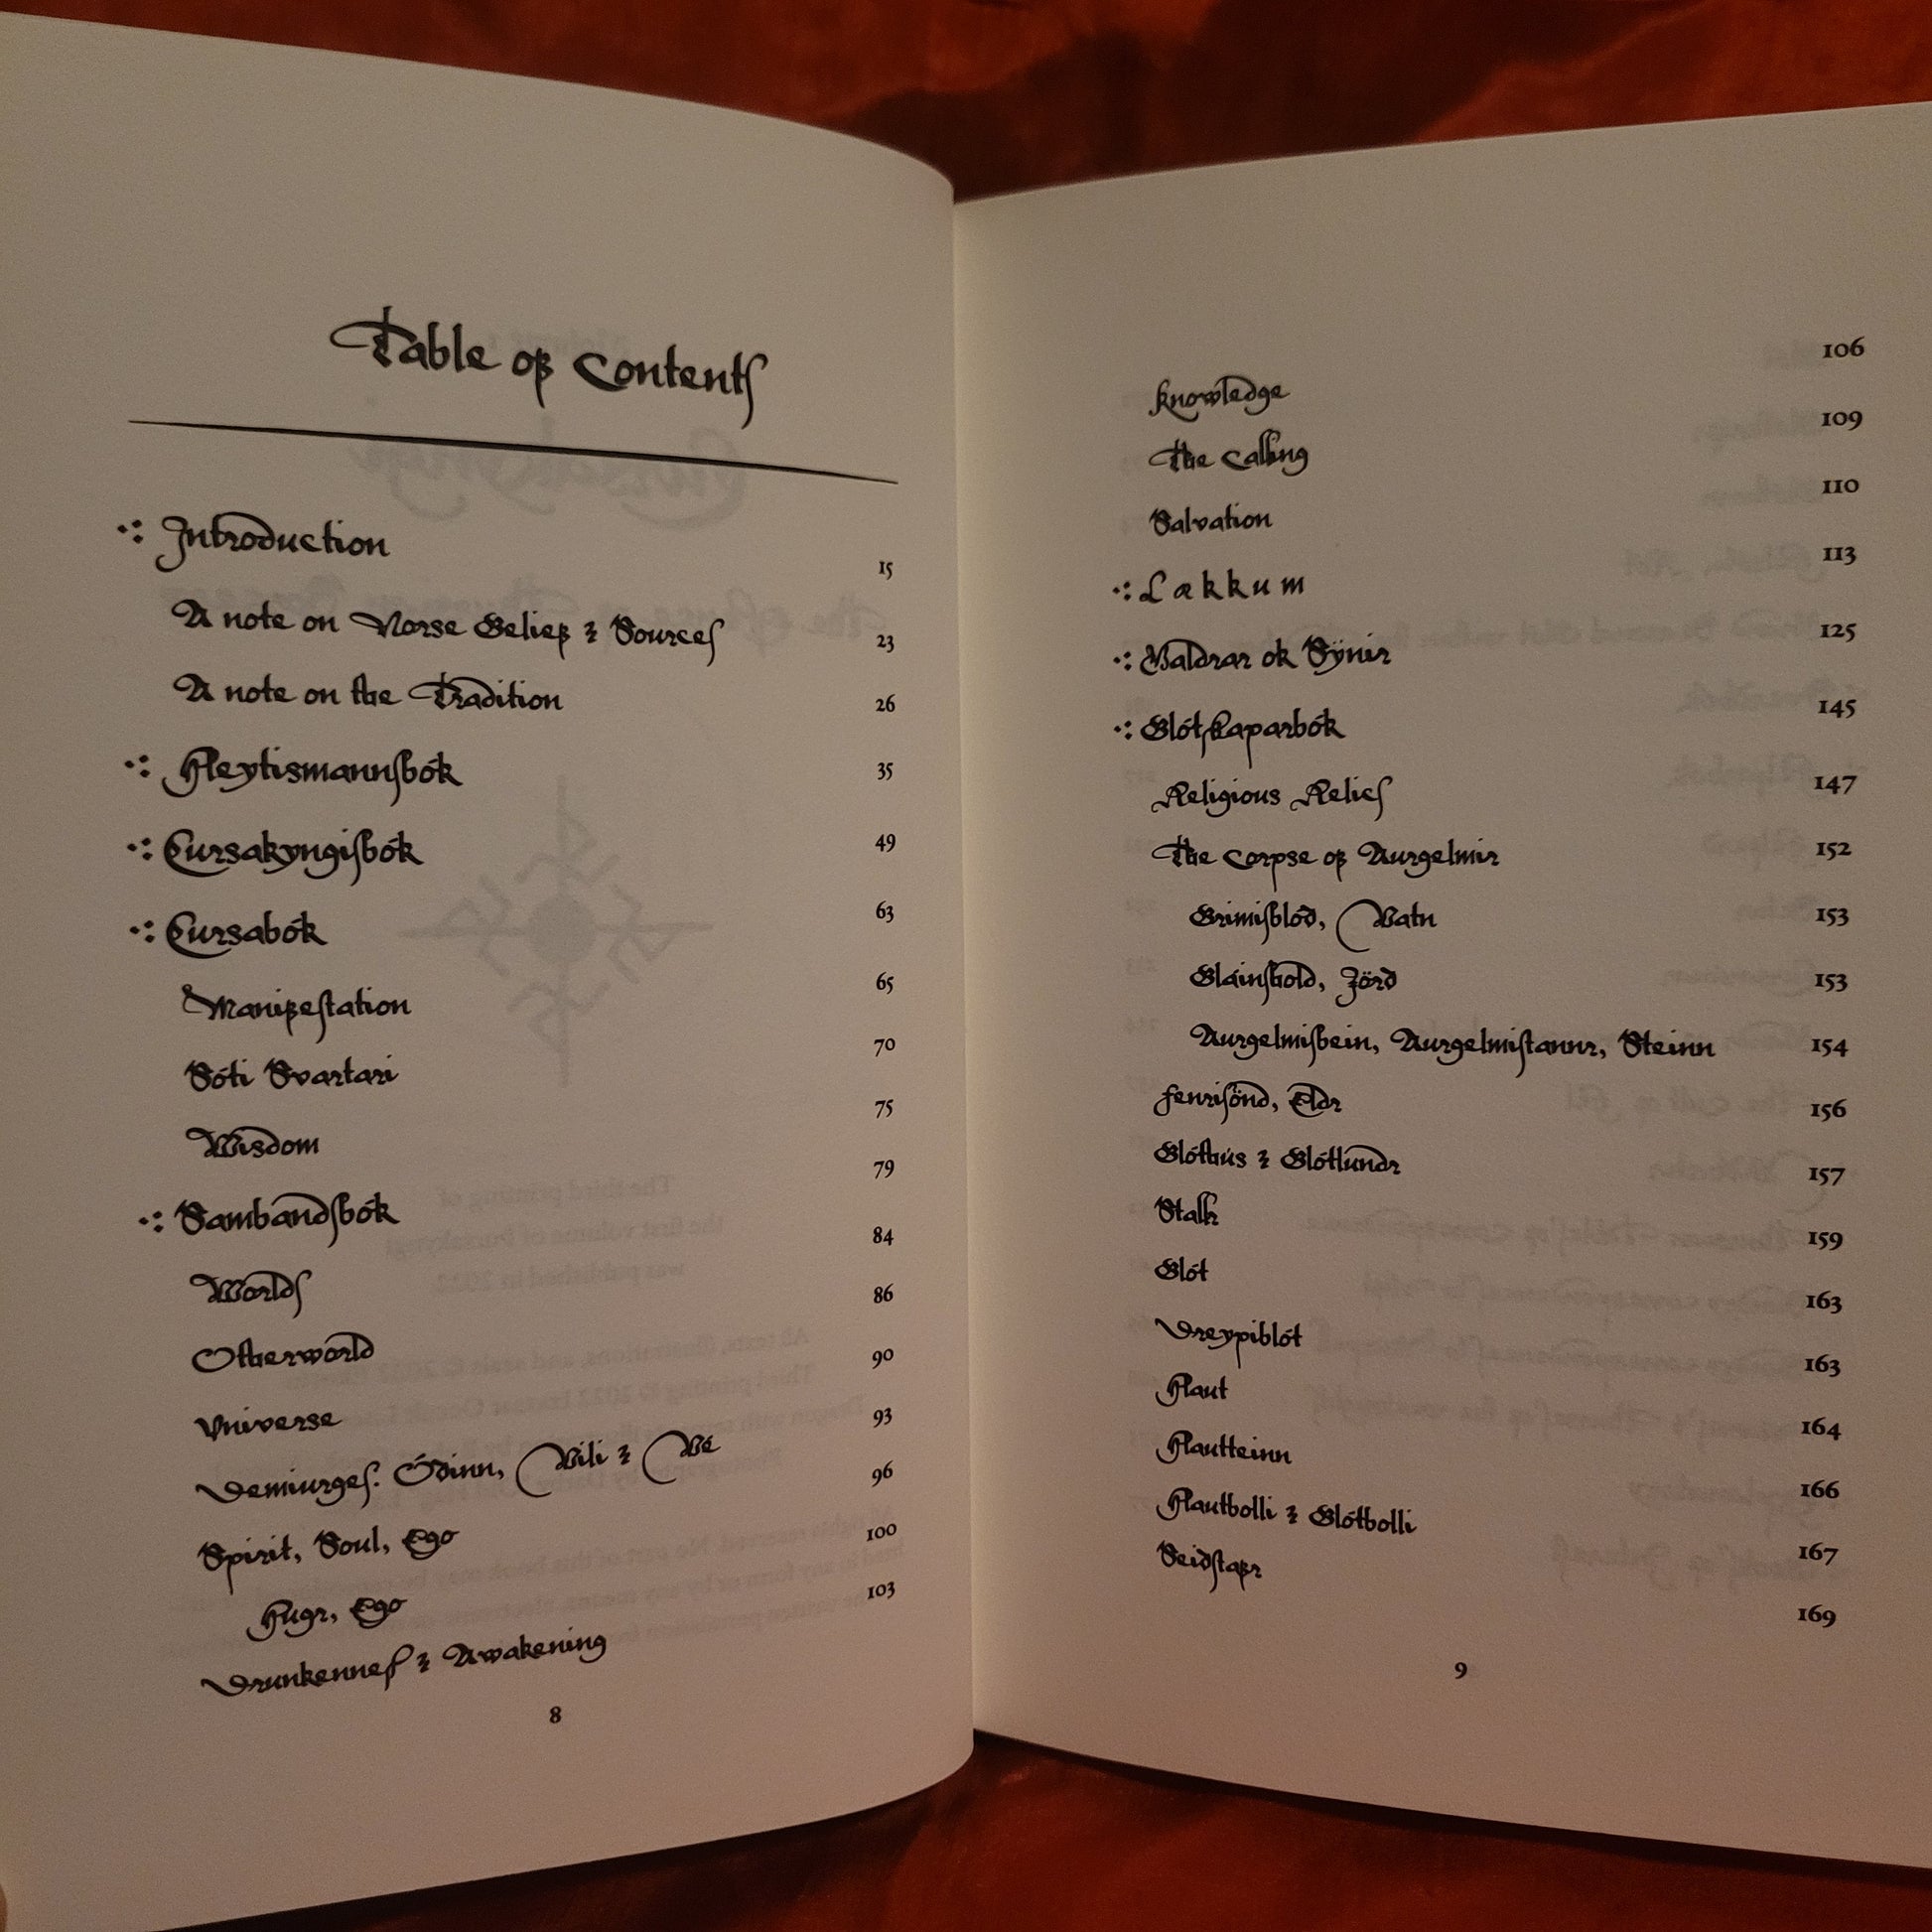 Table of Contents
Introduction 15
A note on Norse Belief & Sources 23
A note on the Tradition 26
Hleytismannsbók 35
Þursakyngisbók 49
Þursabók 63
Manifestation 65
Sóti Svartari 70
Wisdom 75
Sambandsbók 79
Worlds 84
Otherworld 86
Universe 90
Demiurges: Óðinn, Vili & Vé 93
Spirit, Soul, Ego 96
Hugr, Ego 100
Drunkenness & Awakening 103
8
Knowledge 106
The Calling 109
Salvation 110
Lækkum 113
Galdrar ok Sýnir 125
Blótskaparbók 145
Religious Relics 147
The Corpse of Aurgelmir 152
Brimisblóð, Vatn 153
Bláinshold, Jörð 153
Aurgelmisbein, Aurgelmistannr, Steinn 154
Fenrisönd, Eldr 156
Blóthús & Blótlundr 157
Stalli 159
Blót 163
Dreypiblót 163
Hlaut 164
Hlautteinn 166
Hlautbolli & Blótbolli 167
Seiðstafr 169
9